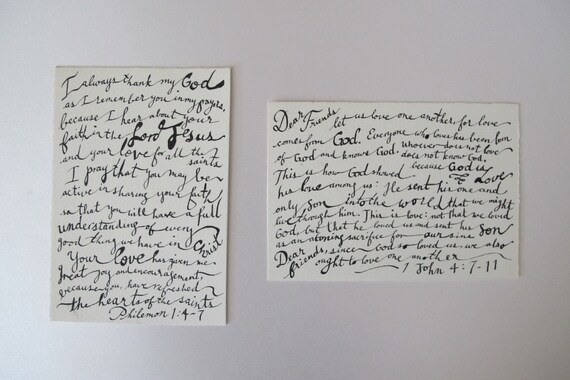 I always thank my God
as I remember you in my prayers,
because I hear about your
faith in the Lord Jesus
and your love for all the saints
I pray that you may be
active in sharing your faith
so that you will have a full
understanding of every
good thing we have in Christ
Your love has given me
great joy and encouragement,
because you, have refreshed
the hearts of the saints
Philemon 1:4-7
Dear Friends let us love one another, for love
comes from God. Everyone who loves has been born
of God and knows God. Whoever does not love does not know God.
because God is Love
This is how God showed
his love among us: He sent his one and
only Son into the world that we might
live through him. This is love: not that we loved
God, but that he loved us and sent his Son
as an atoning sacrifice for our sins
Dear friends, since God so loved us, we also
ought to love one another
1 John 4:7-11